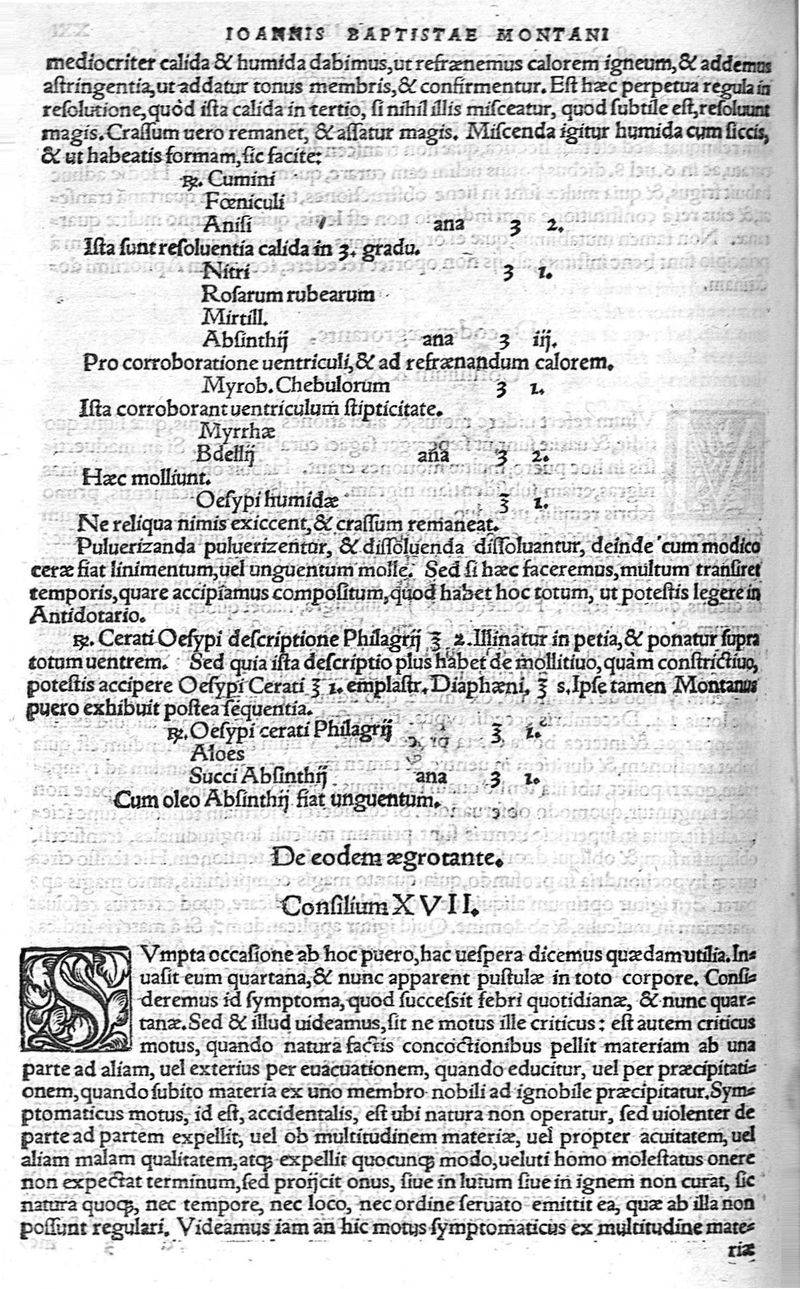 IOANNIS BAPTISTAE MONTANI
mediocriter calida & humida dabimus, ut refrænemus calorem igneum, & addemus
aſtringentia, ut addatur tonus membris, & confirmentur. Eſt hæc perpetua regula in
reſolutione, quòd iſta calida in tertio, ſi nihil illis miſceatur, quod ſubtile eſt, reſoluunt
magis. Craſſum uero remanet, & aſſatur magis. Miſcenda igitur humida cum ſiccis,
& ut habeatis formam, ſic facite:
℞. Cumini
Fœniculi
Aniſi ana ʒ 2.
Iſta ſunt reſoluentia calida in 3. gradu.
Nitri ʒ 1.
Roſarum rubearum
Mirtill.
Abſinthij ana ʒ iij.
Pro corroboratione uentriculi, & ad refrænandum calorem.
Myrob. Chebulorum ʒ 1.
Iſta corroborant uentriculum ſtipticitate.
Myrrhæ
Bdellij ana ʒ 2.
Hæc molliunt.
Oeſypi humidæ ℥ 1.
Ne reliqua nimis exiccent, & craſſum remaneat.
Puluerizanda puluerizentur, & diſſoluenda diſſoluantur, deinde cum modico
ceræ fiat linimentum, uel unguentum molle. Sed ſi hæc faceremus, multum tranſiret
temporis, quare accipiamus compoſitum, quod habet hoc totum, ut poteſtis legere in
Antidotario.
℞. Cerati Oeſypi deſcriptione Philagrij ℥ 2. Illinatur in petia, & ponatur ſupra
totum uentrem. Sed quia iſta deſcriptio plus habet de mollitiuo, quàm conſtrictiuo,
poteſtis accipere Oeſypi Cerati ℥ 1. emplaſtr. Diaphæni. ℥ s. Ipſe tamen Montanus
puero exhibuit poſtea ſequentia.
℞. Oeſypi cerati Philagrij ℥ 1.
Aloes
Succi Abſinthij ana ʒ 1.
Cum oleo Abſinthij fiat unguentum.
De eodem ægrotante.
Conſilium XVII.
SVmpta occaſione ab hoc puero, hac ueſpera dicemus quædam utilia. In-
uaſit eum quartana, & nunc apparent puſtulæ in toto corpore. Conſi-
deremus id ſymptoma, quod ſucceſſit febri quotidianæ, & nunc quar-
tanæ. Sed & illud uideamus, ſit ne motus ille criticus: eſt autem criticus
motus, quando natura factis concoctionibus pellit materiam ab una
parte ad aliam, uel exterius per euacuationem, quando educitur, uel per præcipitati-
onem, quando ſubito materia ex uno membro nobili ad ignobile præcipitatur. Sym-
ptomaticus motus, id eſt, accidentalis, eſt ubi natura non operatur, ſed uiolenter de
parte ad partem expellit, uel ob multitudinem materiæ, uel propter acuitatem, uel
aliam malam qualitatem, atqꝫ expellit quocunqꝫ modo, ueluti homo moleſtatus onere
non expectat terminum, ſed proijcit onus, ſiue in lutum ſiue in ignem non curat, ſic
natura quoqꝫ, nec tempore, nec loco, nec ordine ſeruato emittit ea, quæ ab illa non
poſſunt regulari. Videamus iam an hic motus ſymptomaticus ex multitudine mate-
riæ